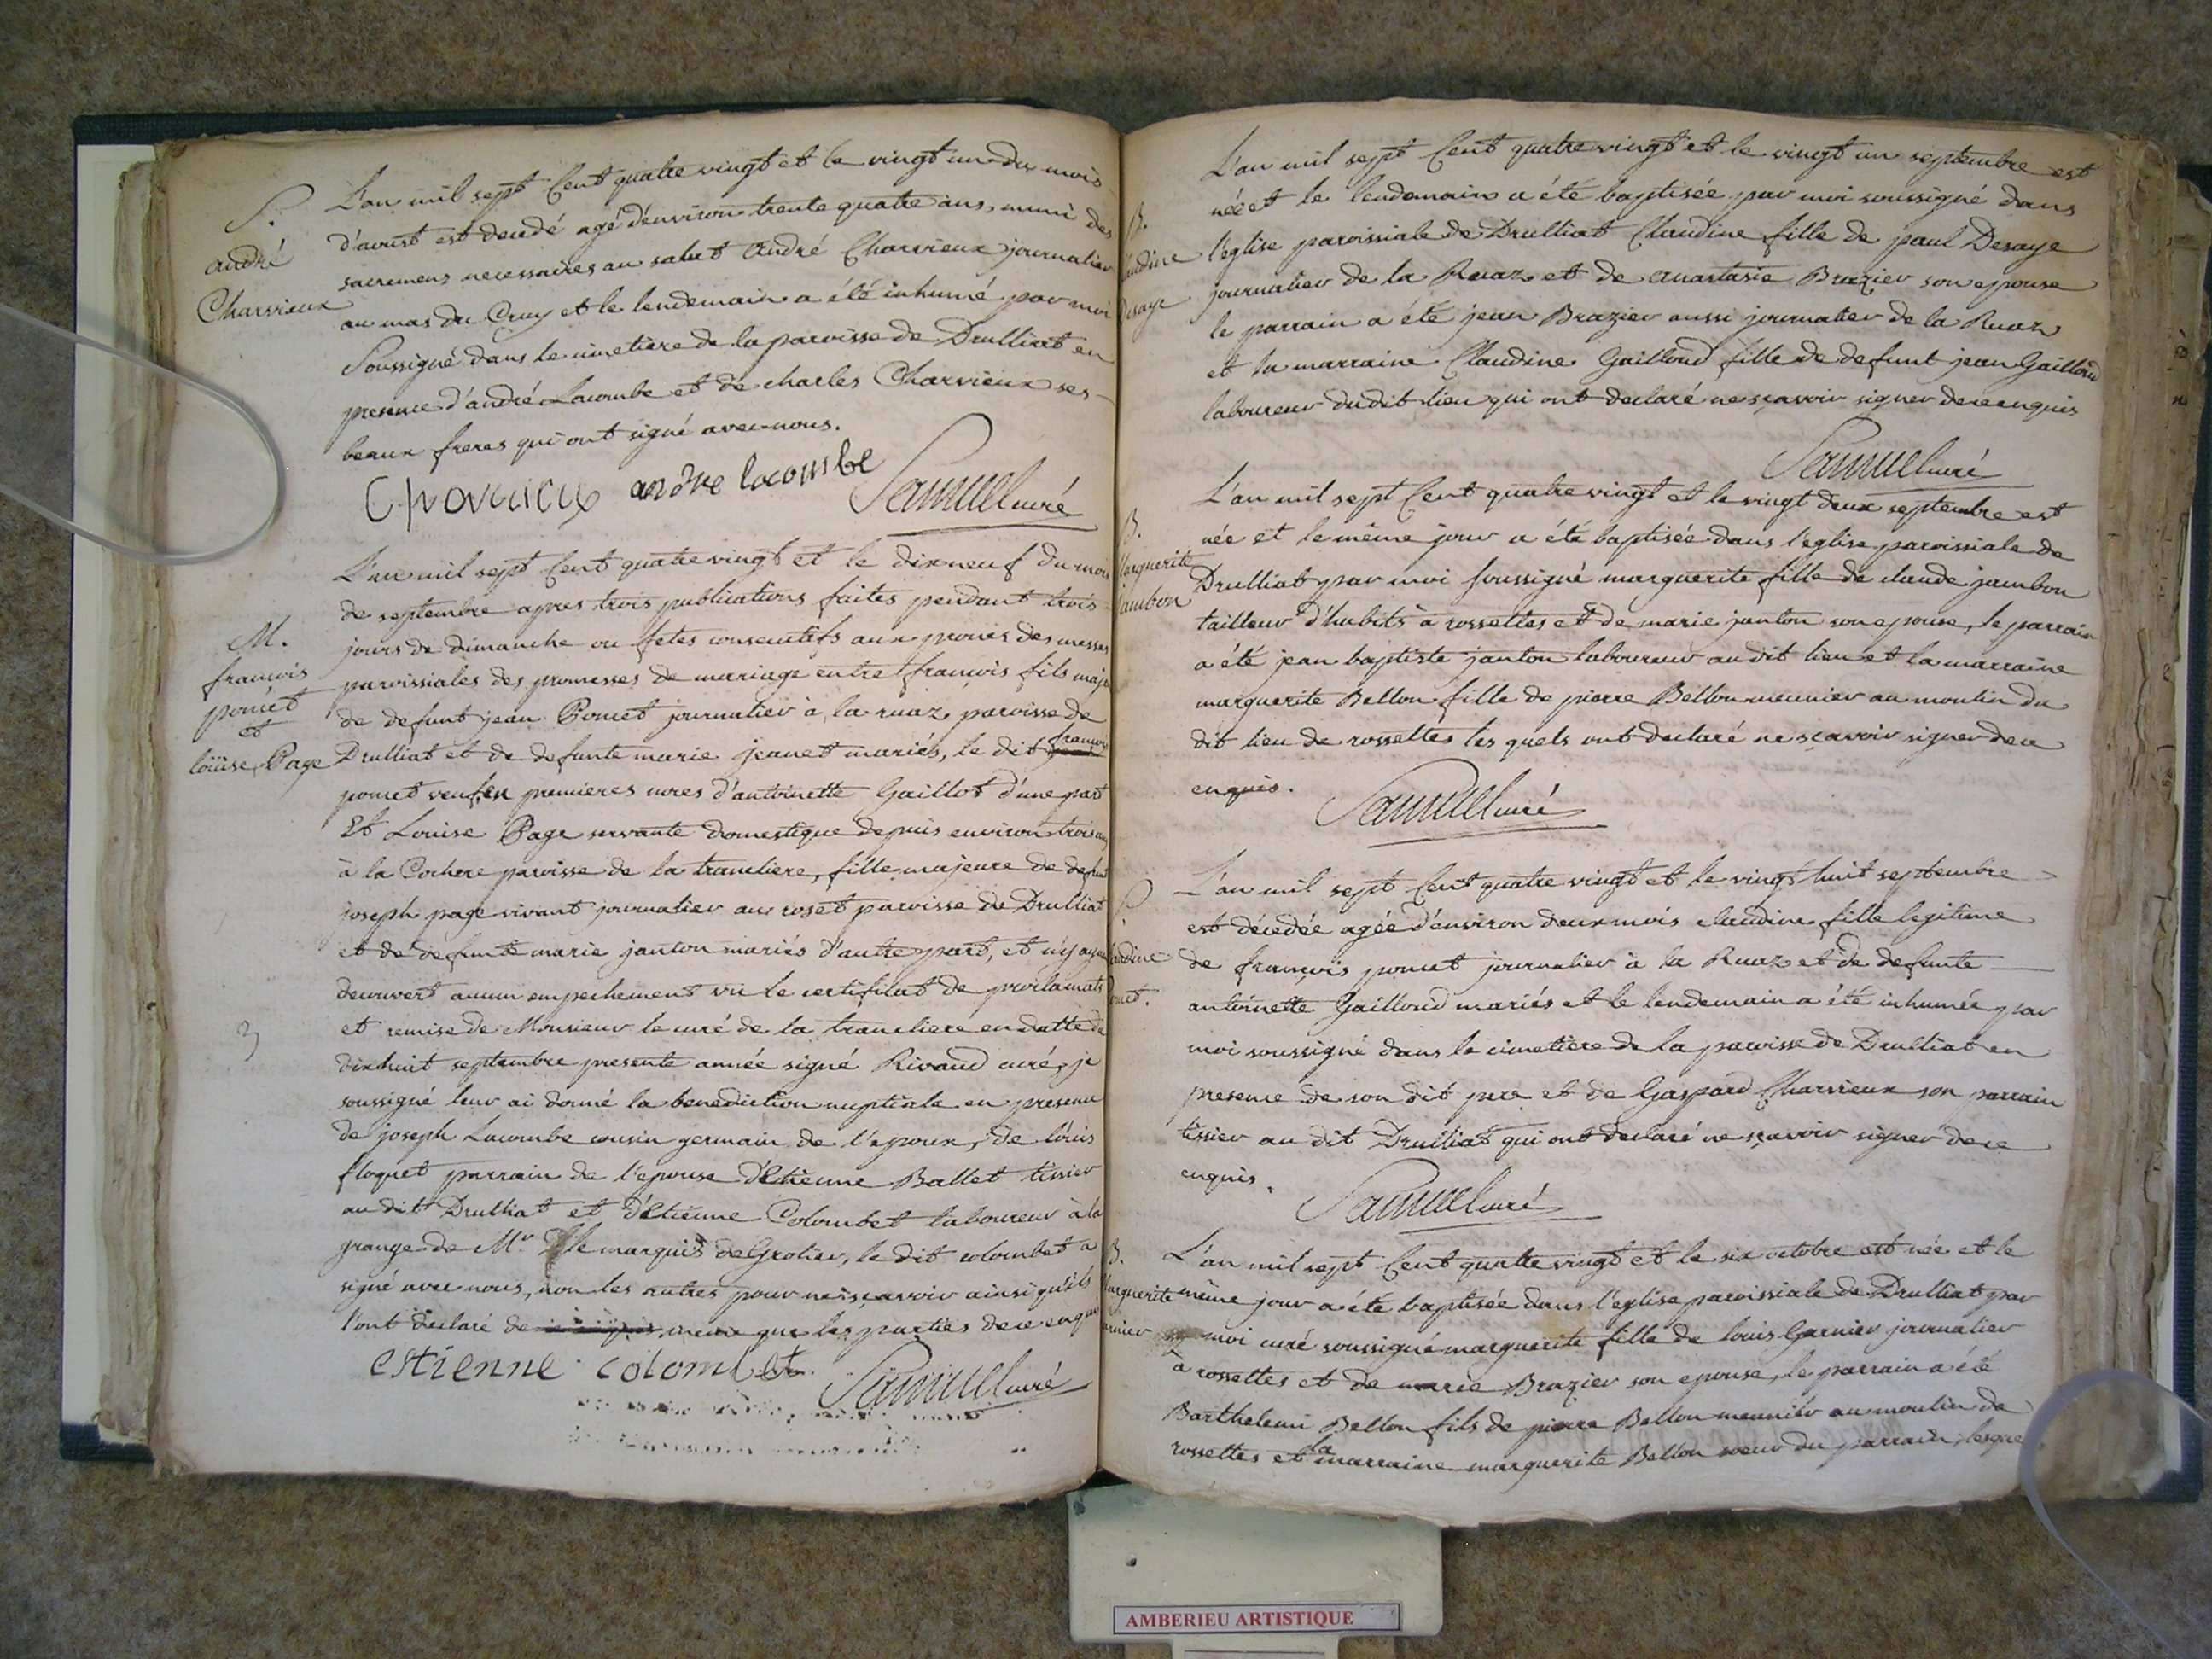 S.
andré
Charvieux
L'an mil sept Cent quatre vingt et le vingt un du mois
d'aoust est decedé agé d'environ trente quatre ans, muni des
sacremens necessaires au salut André Charvieux journalier
au mas du Cruy et le lendemain a été inhumé par moi
Soussigné dans le cimetiere de la paroisse de Drulliat en
presence d'andré Lacombe et de charles Charvieux ses
beaux freres qui ont signé avec nous.
andre lacombe Samuel curé
M.
françois
poncet
et
loüise Page
L'an mil sept Cent quatre vingt et le dix neuf du mois
de septembre apres trois publications faites pendant trois
jours de dimanche ou fetes consecutifs aux prones des messes
paroissiales des promesses de mariage entre françois fils maj
de defunt jean Poncet journalier à la ruaz paroisse de
Drulliat et de defunte marie jeanet mariés, le dit françois
poncet veuf en premieres noces d'antoinette Gaillot d'une part
Et Louise Page servante domestique depuis environ trois ans
à la Cochere paroisse de la trancliere, fille majeure de defunt
joseph page vivant journalier au roset paroisse de Drulliat
et de defunte marie janton mariés d'autre part, et n'y ayant
decouvert aucun empechement vû le certificat de proclamats
et remise de Monsieur le curé de la trancliere en datte de
dixhuit septembre presente année signé Rivaud curé, je
soussigné leur ai donné la benediction nuptiale en presence
de joseph Lacombe cousin germain de l'epoux, de loüis
floquet parrain de l'epouse d'Etienne Ballet tissier
au dit Drulliat et d'Etienne Colombet laboureur à la
grange de Mr le marquis de Grolier, le dit colombet a
signé avec nous, non les autres pour ne sçavoir ainsi qu'ils
l'ont déclaré de même que les parties de ce enquis
estienne colombet Samuel curé
3
B.
Claudine
Desaye
L'an mil sept Cent quatre vingt et le vingt un septembre est
née et le lendemain a été baptisée par moi soussigné dans
l'eglise paroissiale de Drulliat Claudine fille de paul Desaye
journalier de la Ruaz et de anastasie Brazier son epouse
le parrain a été jean Brazier aussi journalier de la Ruaz
et la marraine Claudine Gailloud fille de defunt jean Gailloud
laboureur dudit lieu qui ont declaré ne sçavoir signer de ce enquis
Samuel curé
B.
Marguerite
jambon
L'an mil sept Cent quatre vingt et le vingt deux septembre est
née et le même jour a été baptisée dans l'eglise paroissiale de
Drulliat par moi soussigné marguerite fille de claude jambon
tailleur d'habits à rossettes et de marie janton son epouse, le parrain
a été jean baptiste janton laboureur au dit lieu et la marraine
marguerite Bellon fille de pierre Bellon meunier au moulin du
dit lieu de rossettes les quels ont declaré ne sçavoir signer de ce
enquis.
Samuel curé
S
claudine
poncet.
L'an mil sept Cent quatre vingt et le vingt huit septembre
est décedée agée d'environ deux mois claudine fille legitime
de françois poncet journalier à la Ruaz et de defunte
antoinette Gailloud mariés et le lendemain a été inhumée par
moi soussigné dans le cimetiere de la paroisse de Drulliat en
presence de son dit pere et de Gaspard Charvieux son parrain
tissier au dit Drulliat qui ont declaré ne sçavoir signer de ce
enquis.
Samuel curé
B.
Marguerite
Garnier
L'an mil sept Cent quatre vingt et le six octobre est née et le
même jour a été baptisée dans l'eglise paroissiale de Drulliat par
moi curé soussigné marguerite fille de louis Garnier journalier
à rossettes et de marie Brazier son epouse, le parrain a été
Barthelemi Bellon fils de pierre Bellon meunier au moulin de
rossettes et la marraine marguerite Bellon soeur du parrain, lesque
AMBERIEU ARTISTIQUE